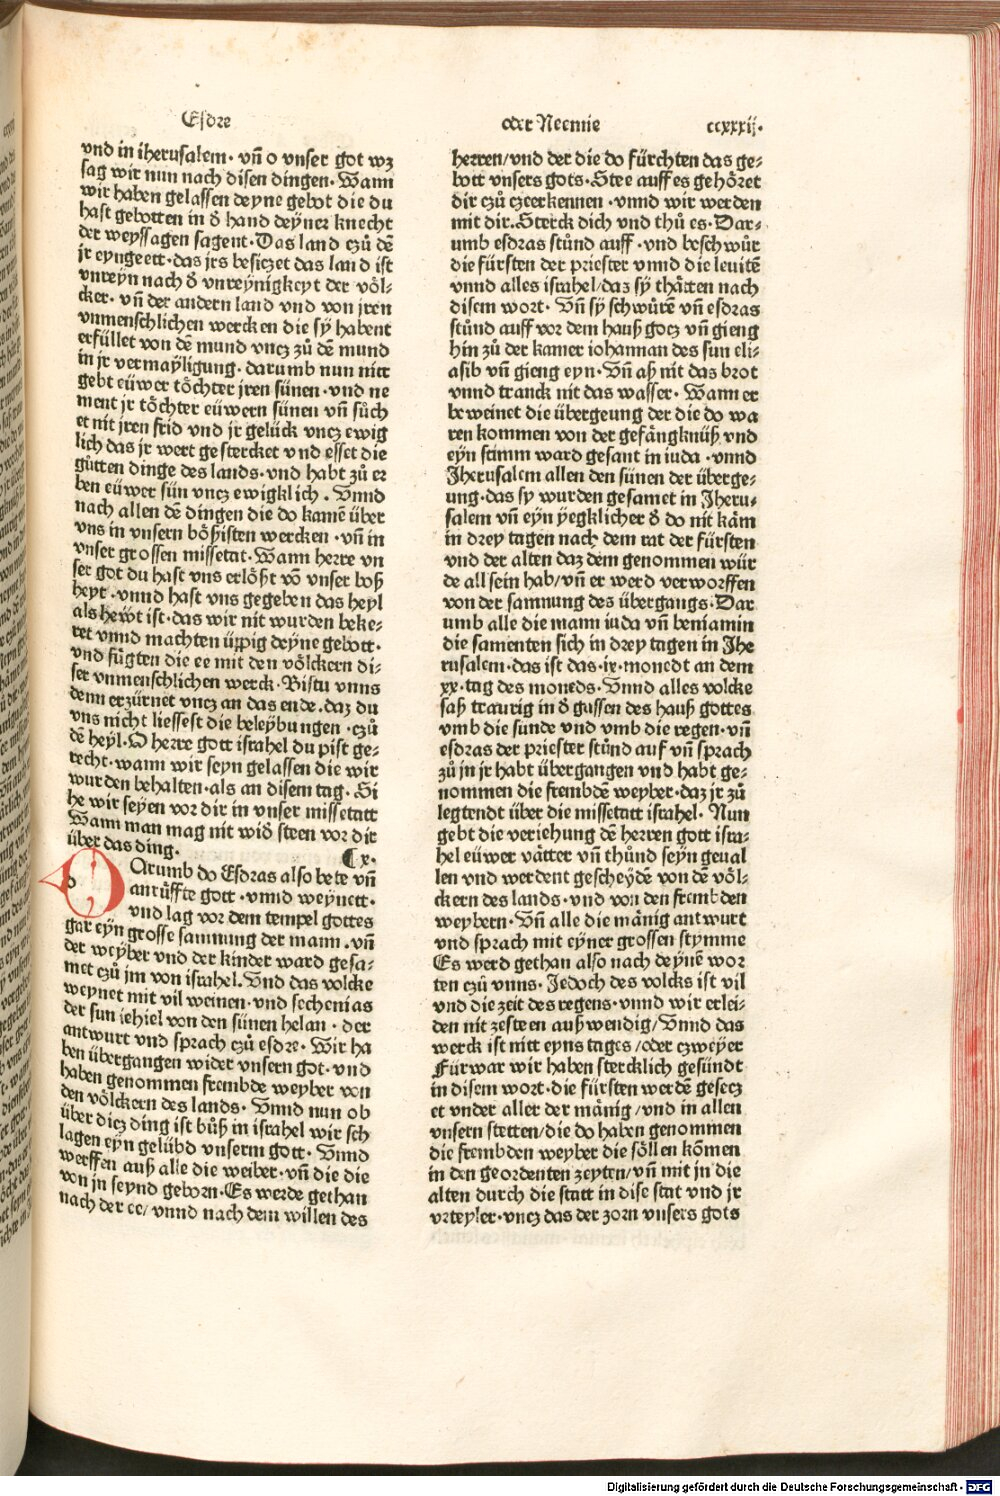 Esdre
oder Neemie ccxxxij.
vnd in iherusalem· vñ o vnser got wz
sag wir nun nach disen dingen· Wann
wir haben gelassen deyne gebot die du
hast gebotten in ð hand deyner knecht
der weyssagen sagent· Das land czů dē
jr eyngeett· das jrs besiczet das land ist
vnreyn nach ð vnreynigkeyt der völ⸗
cker· vñ der andern land vnd von jren
vnmenschlichen wercken die sÿ habent
erfüllet von dē mund vncz zů dē mund
in jr vermaÿligung· darumb nun nitt
gebt eüwer töchter jren sünen· vnd ne
ment jr töchter eüwern sünen vñ sůch
et nit jren frid vnd jr gelück vncz ewig
lich das jr wert gestercket vnd esset die
gůtten dinge des lands· vnd habt zů er
ben eüwer sün vncz ewigklich. Vnnd
nach allen dē dingen die do kamē über
vns in vnsern bößisten wercken· vñ in
vnser grossen missetat· Wann herre vn
ser got du hast vns erlößt vō vnser boß
heyt· vnnd hast vns gegeben das heyl
als hewt ist· das wir nit wurden beke⸗
ret vnnd machten üppig deyne gebott·
vnd fůgten die ee mit den völckern di⸗
ser vnmenschlichen werck· Bistu vnns
denn erzürnet vncz an das ende· daz du
vns nicht liessest die beleybungen· czů
dē heyl· O herre gott israhel du pist ge⸗
recht· wann wir seyn gelassen die wir
wurden behalten· als an disem tag· Si
he wir seyen vor dir in vnser missetatt
Wann man mag nit wið steen vor dir
über das ding. ¶x·
DArumb do Esdras also bete vñ
anrůffte gott· vnnd weynett·
vnd lag vor dem tempel gottes
gar eyn grosse samnung der mann· vñ
der weyber vnd der kinder ward gesa⸗
met czů jm von israhel· Vnd das volcke
weynet mit vil weinen· vnd sechenias
der sun iehiel von den sünen helan· der
antwurt vnd sprach czů esdre· Wir ha
ben übergangen wider vnsern got· vnd
haben genommen frembde weyber von
den völckern des lands· Vnnd nun ob
über dicz ding ist bůß in israhel wir sch
lagen eyn gelübd vnserm gott· Vnnd
werffen auß alle die weiber· vñ die die
von jn seynd geborn· Es werde gethan
nach der ee/ vnnd nach dem willen des
herren/vnd der die do fürchten das ge⸗
bott vnsers gots· Stee auff es gehöret
dir czů czeerkennen· vnnd wir werden
mit dir. Sterck dich vnd thů es· Dar⸗
umb esdras stůnd auff· vnd beschwůr
die fürsten der priester vnnd die leuitē
vnnd alles israhel/daz sÿ thätten nach
disem wort· Vñ sÿ schwůrē vñ esdras
stůnd auff vor dem hauß gocz vñ gieng
hin zů der kamer iohannan des sun eli⸗
asib vñ gieng eyn· Vñ aß nit das brot
vnnd tranck nit das wasser· Wann er
beweinet die übergeung der die do wa
ren kommen von der gefängknüß vnd
eÿn stimm ward gesant in iuda· vnnd
Jherusalem allen den sünen der überge⸗
ung· das sy wurden gesamet in Jheru⸗
salem vñ eyn yegklicher ð do nit käm
in drey tagen nach dem rat der fürsten
vnd der alten daz dem genommen wür
de all sein hab/vñ er werd verworffen
von der samnung des übergangs· Dar
umb alle die mann iuda vñ beniamin
die samenten sich in drey tagen in Jhe
rusalem· das ist das·ix·monedt an dem
xx·tag des moneds· Vnnd alles volcke
saß traurig in ð gassen des hauß gottes
vmb die sunde vnd vmb die regen· vñ
esdras der priester stůnd auf vñ sprach
zů jn jr habt übergangen vnd habt ge⸗
nommen die frembdē weyber· daz jr zů
legtendt über die missetatt israhel· Nun
gebt die veriehung dē herren gott isra⸗
hel eüwer vätter vñ thůnd seyn geual
len vnd werdent gescheydē von dē völ⸗
ckern des lands· vnd von den frembden
weybern· Vñ alle die mänig antwurt
vnd sprach mit eÿner grossen stymme
Es werd gethan also nach deynē wor
ten czů vnns. Jedoch des volcks ist vil
vnd die zeit des regens· vnnd wir erlei⸗
den nit zesteen außwendig/Vnnd das
werck ist nitt eyns tages/oder czweyer
Fürwar wir haben stercklich gesündt
in disem wort· die fürsten werdē gesecz
et vnder aller der mänig/vnd in allen
vnsern stetten/die do haben genommen
die frembden weyber die söllen kōmen
in den geordenten zeyten/vñ mit jn die
alten durch die statt in dise stat vnd jr
vrteyler· vncz das der zorn vnsers gots
Digitalisierung gefördert durch die Deutsche Forschungsgemeinschaft - DFG